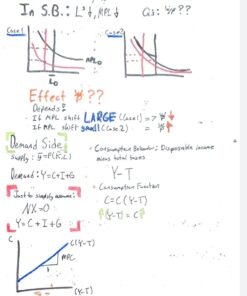 In S.B.: Lˢ↓, MPL↓
Q's: W/P??
Case1
Case2
MPL₀
L₀
Effect W/P??
Depends:
If MPL shift LARGE (Case1) => W/P ↓
If MPL shift small (Case 2) W/P ↑
Demand Side
supply: Y=F(K,L)
Demand: Y=C+I+G
Just to simplify assume:
NX=0
Y=C+I+G
· Consumption Behavior: Disposable income
minus total taxes
Y-T
· Consumption Function
C=C(Y-T)
↑(Y-T)=C↑
C
C(Y-T)
MPC
1
(Y-T)